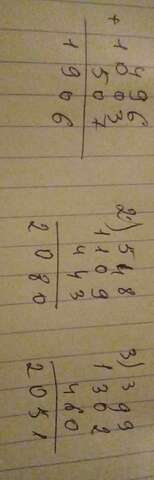 496
1906
2) 548
1109
443
2080
3) 399
1302
460
2051